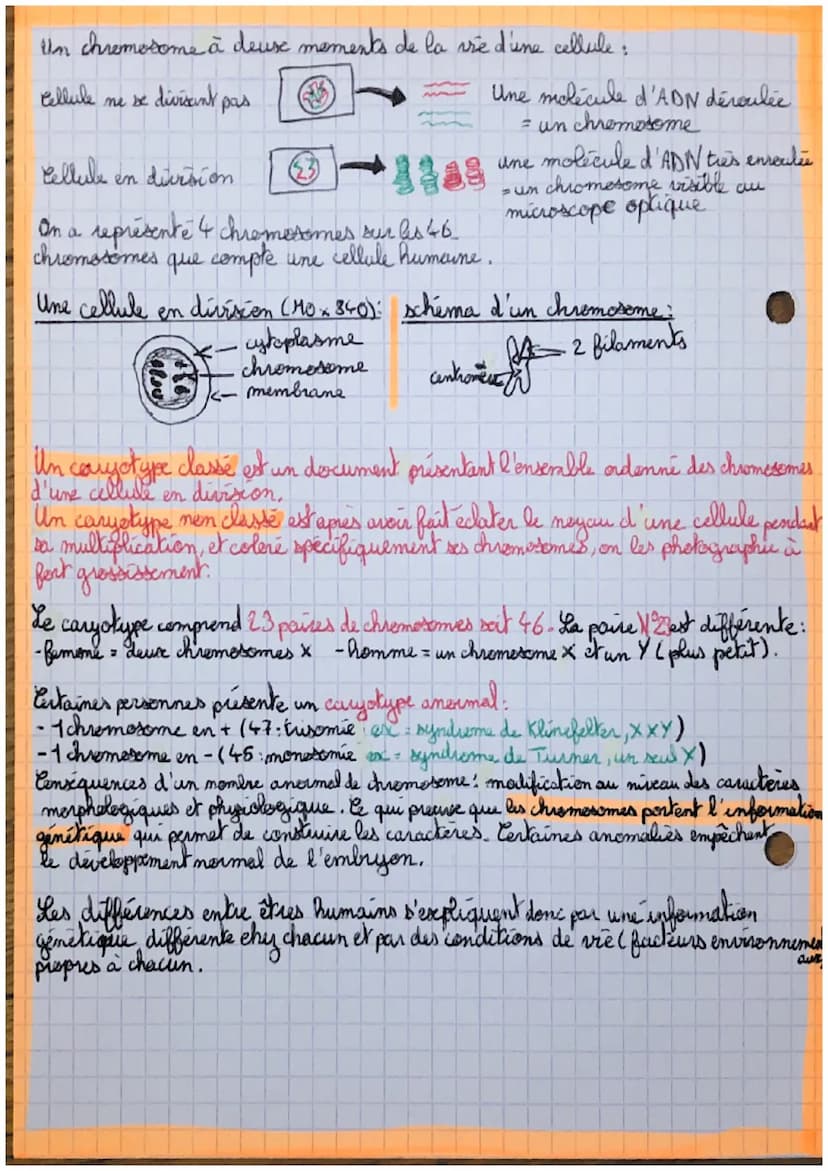 Un chromosome à deux moments de la vie d'une cellule :
Cellule ne se divisant pas
Une molécule d'ADN déroulée
= un chromosome
Cellule en division
une molécule d'ADN très enroulée
= un chromosome visible au
microscope optique
On a représenté 4 chromosomes sur les 46
chromosomes que compte une cellule humaine.
Une cellule en division (MO x 840) :
cytoplasme
chromosome
membrane
schéma d'un chromosome :
2 filaments
centromère
Un caryotype classé est un document présentant l'ensemble ordonné des chromosomes
d'une cellule en division.
Un caryotype non classé est après avoir fait éclater le noyau d'une cellule pendant
sa multiplication, et coloré spécifiquement ses chromosomes, on les photographie à
fort grossissement.
Le caryotype comprend 23 paires de chromosomes soit 46. La paire N°23 est différente :
- femme = deux chromosomes X - homme = un chromosome X et un Y (plus petit).
Certaines personnes présente un caryotype anormal :
- 1 chromosome en + (47 : trisomie ex = syndrome de Klinefelter, XXY)
- 1 chromosome en - (45 : monosomie ex = syndrome de Turner, un seul X)
Conséquences d'un nombre anormal de chromosome : modification au niveau des caractères
morphologiques et physiologique. Ce qui prouve que les chromosomes portent l'information
génétique qui permet de construire les caractères. Certaines anomalies empêchent
le développement normal de l'embryon.
Les différences entre êtres humains s'expliquent donc par une information
génétique différente chez chacun et par des conditions de vie (facteurs environnementaux)
propres à chacun.